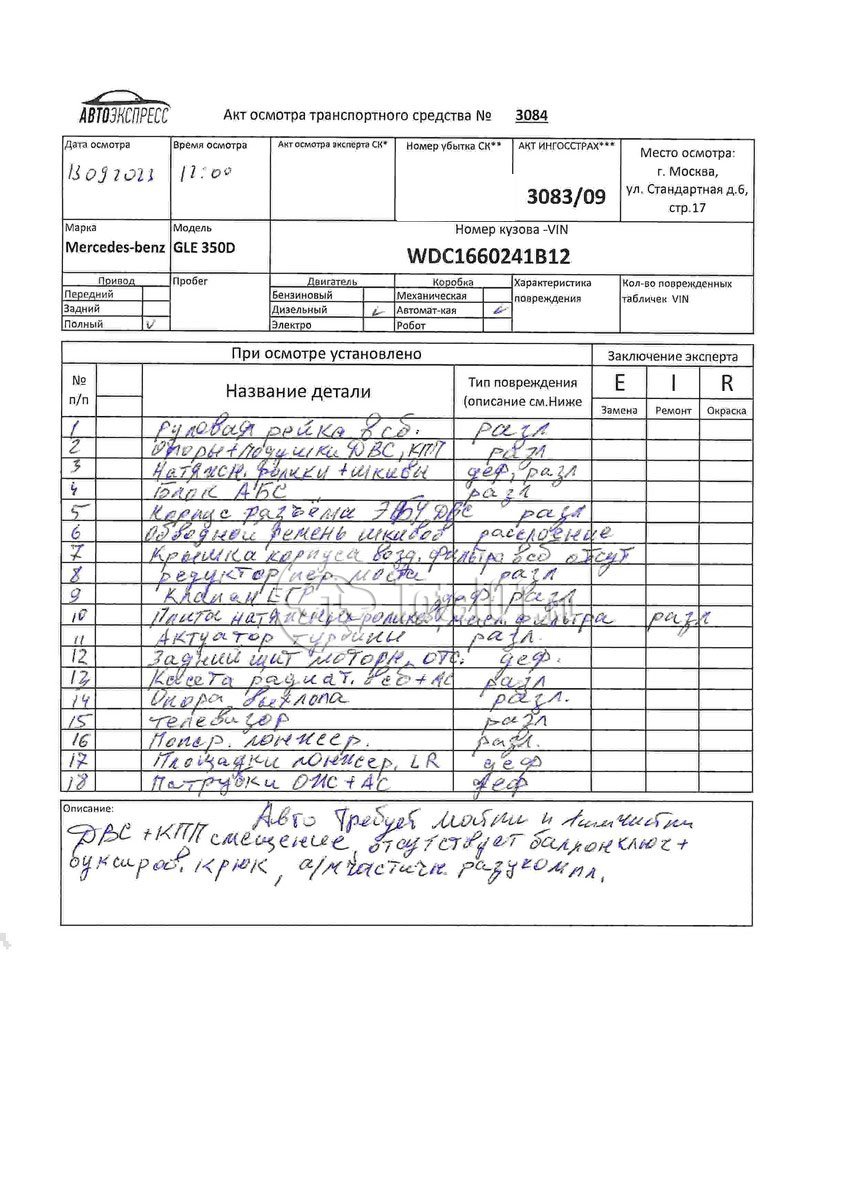 АВТОЭКСПРЕСС
Акт осмотра транспортного средства № 3084
Дата осмотра Время осмотра Акт осмотра эксперта СК* Номер убытка СК** АКТ ИНГОССТРАХ*** Место осмотра:
13 09 2023 12:00 3083/09 г. Москва,
ул. Стандартная д.6,
стр.17
Марка Модель Номер кузова -VIN
Mercedes-benz GLE 350D WDC1660241B12
Привод Пробег Двигатель Коробка Характеристика Кол-во поврежденных
Передний Бензиновый Механическая повреждения табличек VIN
Задний Дизельный Автомат-кая
Полный Электро Робот
При осмотре установлено Заключение эксперта
№ п/п Название детали Тип повреждения (описание см.Ниже E I R
Замена Ремонт Окраска
1 Рулевая рейка в сб. разл
2 Опоры+подушки ДВС, КПП разл
3 Натяжн. ролики + шкивы деф, разл
4 Блок АБС разл
5 Корпус разъёма ЭБУ ДВС разл
6 Обводной ремень шкивов расслоение
7 Крышка корпуса возд. фильтра в сб отсут
8 редуктор пер. моста разл
9 Клапан ЕГР деф. разл
10 Плита натяжных роликов, масл. фильтра разл
11 Актуатор турбины разл.
12 Задний щит моторн. отс. деф.
13 Касета радиат. в сб + АС разл
14 Опора выхлопа разл.
15 телевизор разл
16 Попер. лонжер. разл.
17 Площадки лонжер. LR деф
18 Патрубки ОЖ + АС деф
Описание: Авто требует мойки и химчистки
ДВС + КПП смещение, отсутствует баллон ключ +
буксиров. крюк, а/м частичн. разукомпл.